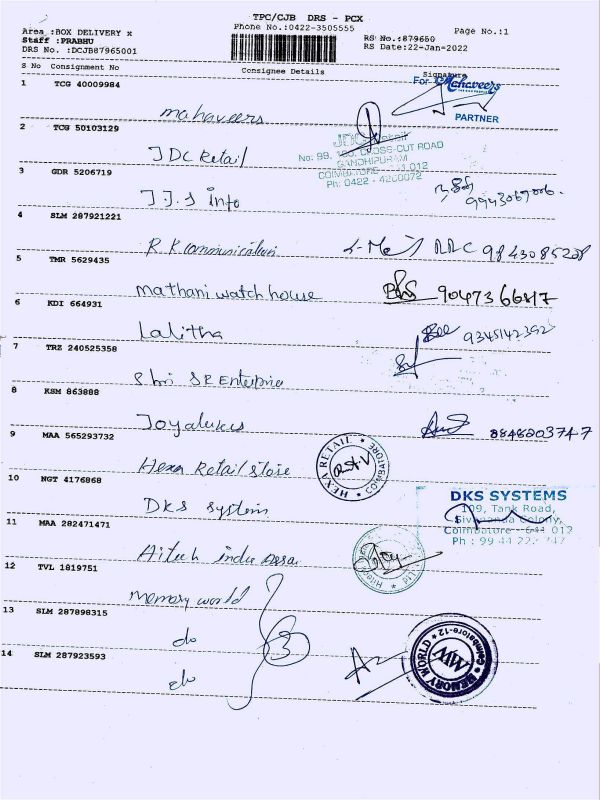 TPC/CJB DRS - PCX
Area :BOX DELIVERY x Phone No.:0422-3505555 Page No.:1
Staff :PRABHU RS No.:879650
DRS No. :DCJB87965001 RS Date:22-Jan-2022
S No Consignment No Consignee Details Signature
1 TCG 40009984 For Mahaveers
PARTNER
mahaveers
2 TCG 50103129
JDC Retail
JDC Retail
No: 99, 100, CROSS-CUT ROAD
GANDHIPURAM
COIMBATORE 012
Ph: 0422 - 4200072
3 GDR 5206719
J.J.S info
4 SLM 287921221
R.K communication RRC 9843085208
5 TMR 5629435
mathani watch house
6 KDI 664931
Lalitha
7 TRZ 240525358
Shri SR Enterprise
8 KSM 863888
Joyalukus 8848203747
9 MAA 565293732
Hexa Retail Store
HEXA RETAIL * COIMBATORE *
10 NGT 4176868
DKS System
DKS SYSTEMS
109, Tank Road,
Sivananda Colony,
Coimbatore - 641 012
Ph : 99 44 22
11 MAA 282471471
Hitech
12 TVL 1819751
memory world
13 SLM 287898315
do
14 SLM 287923593
do
MW
* MEMORY WORLD * Coimbatore-12